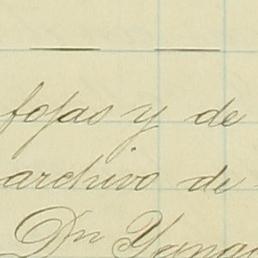 fojas y de
archivo de
Dn